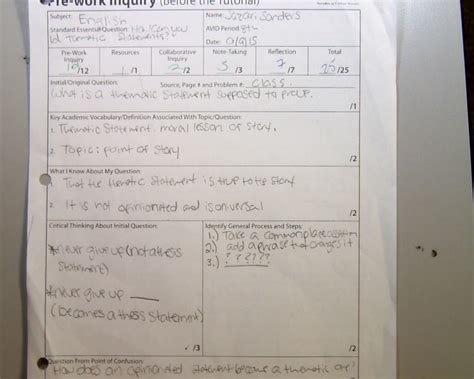 Pre-work Inquiry (Before the Tutorial)
Subject: English
Name: Sanders
Standard Essential Question: How can you
AVID Period: 8th
Id Thematic Statements?
Date:
Pre-Work Inquiry
Resources
Collaborative Inquiry
Note-Taking
Reflection
Total
12/12
/1
2/2
3/3
7/7
25/25
Initial/Original Question:
Source, Page # and Problem #: class
What is a thematic statement supposed to
/1
Key Academic Vocabulary/Definition Associated With Topic/Question:
1. Thematic Statement: moral lesson of story.
2. Topic: point of story
/2
What I Know About My Question:
1. That the thematic statement is true to the story
2. It is not opinionated and is universal
/2
Critical Thinking About Initial Question:
*never give up (not a thesis
statement)
*never give up ____
(becomes a thesis statement)
/3
Identify General Process and Steps:
1.) Take a commonplace
2.) add a phrase that changes it
3.) ? ? ? ? ? ?
/2
Question From Point of Confusion:
How does an opinionated statement become a thematic one?